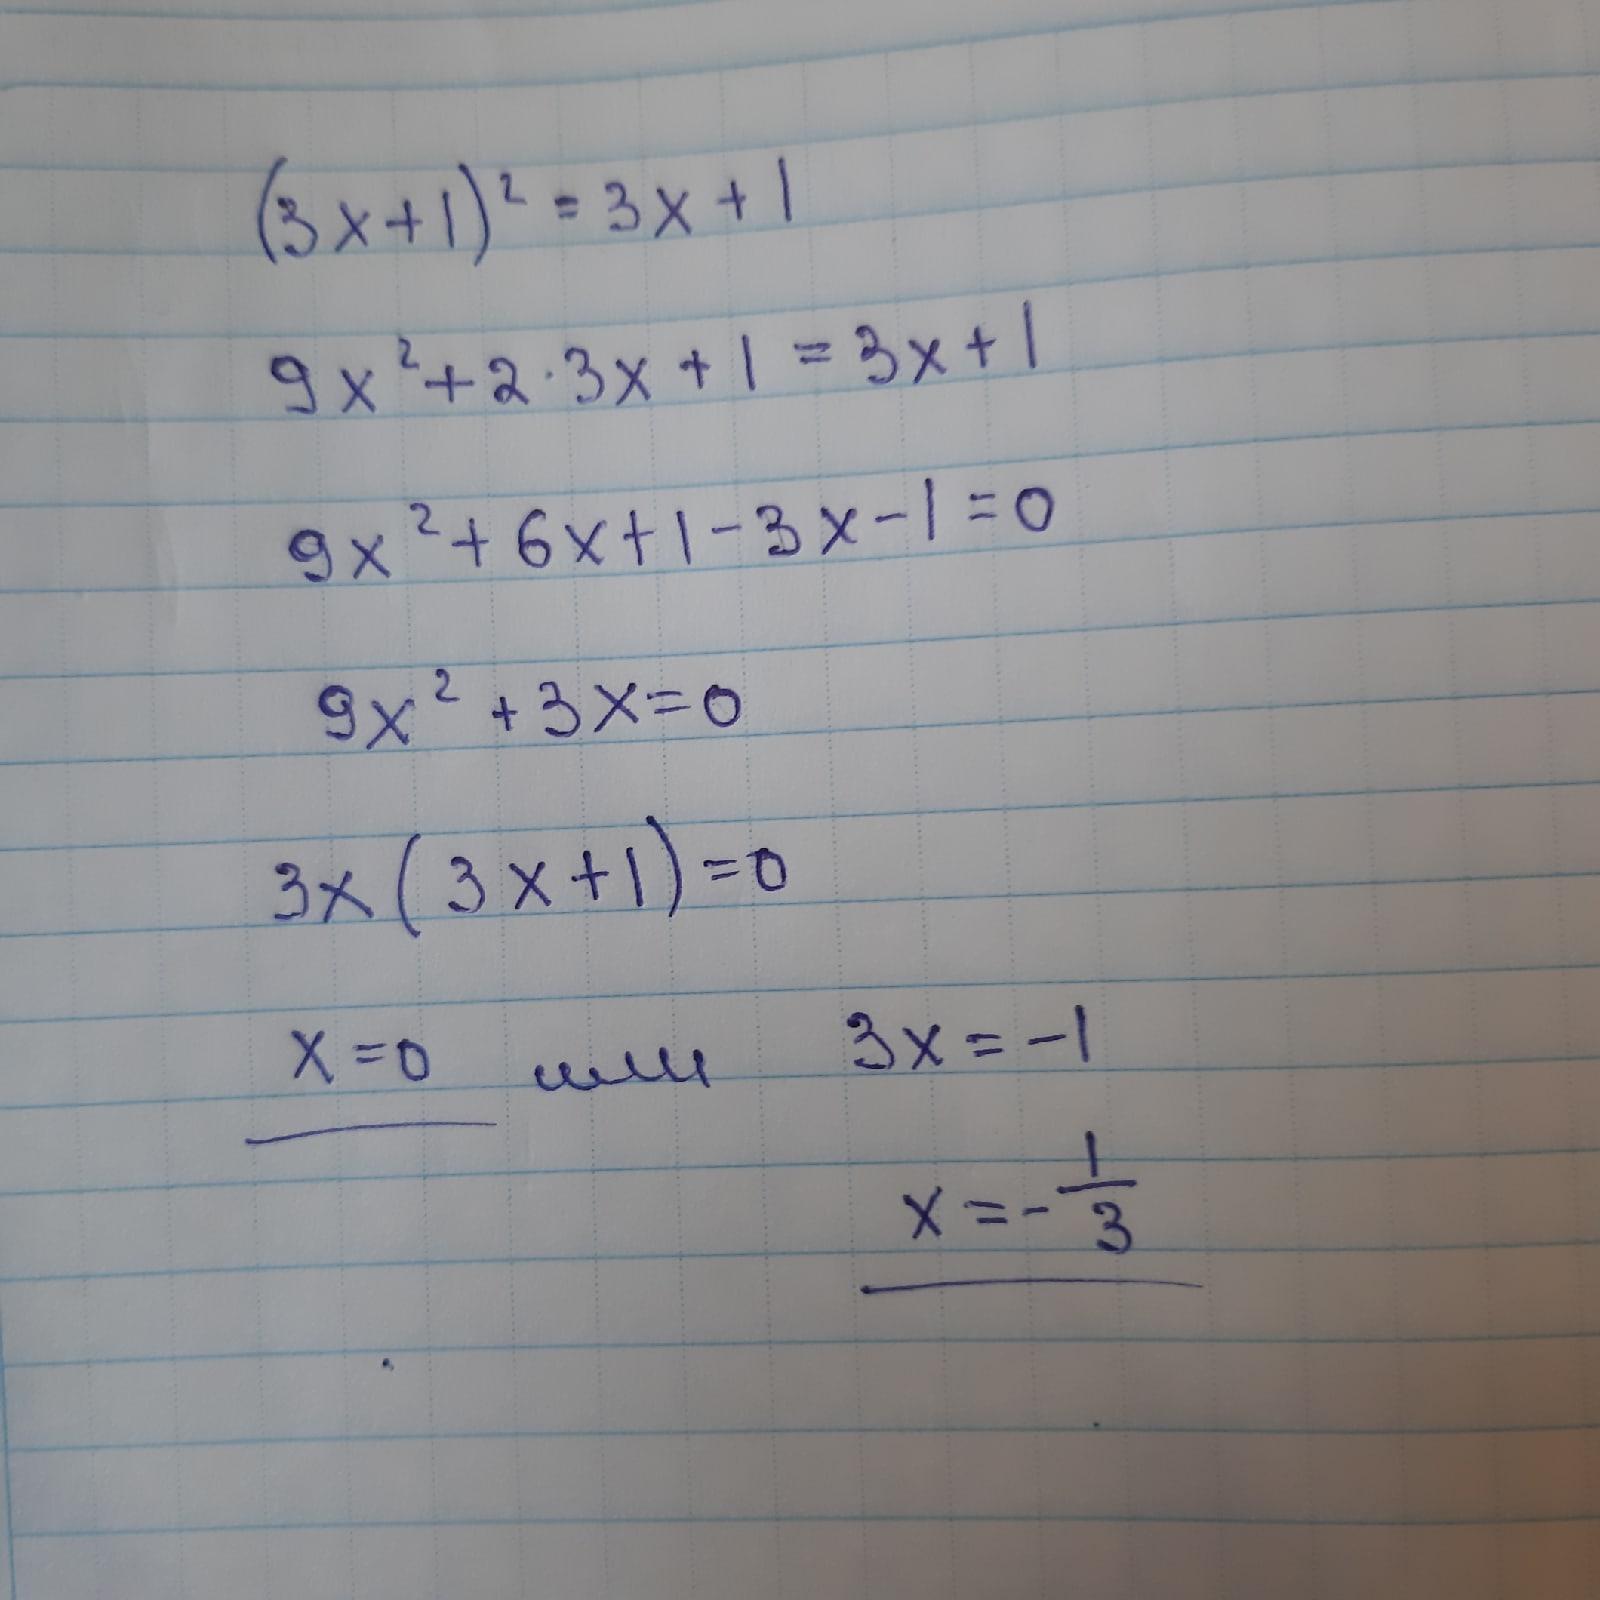 (3x+1)² = 3x+1
9x²+2·3x+1=3x+1
9x²+6x+1-3x-1=0
9x²+3x=0
3x(3x+1)=0
x=0 или 3x=-1
x=-1/3